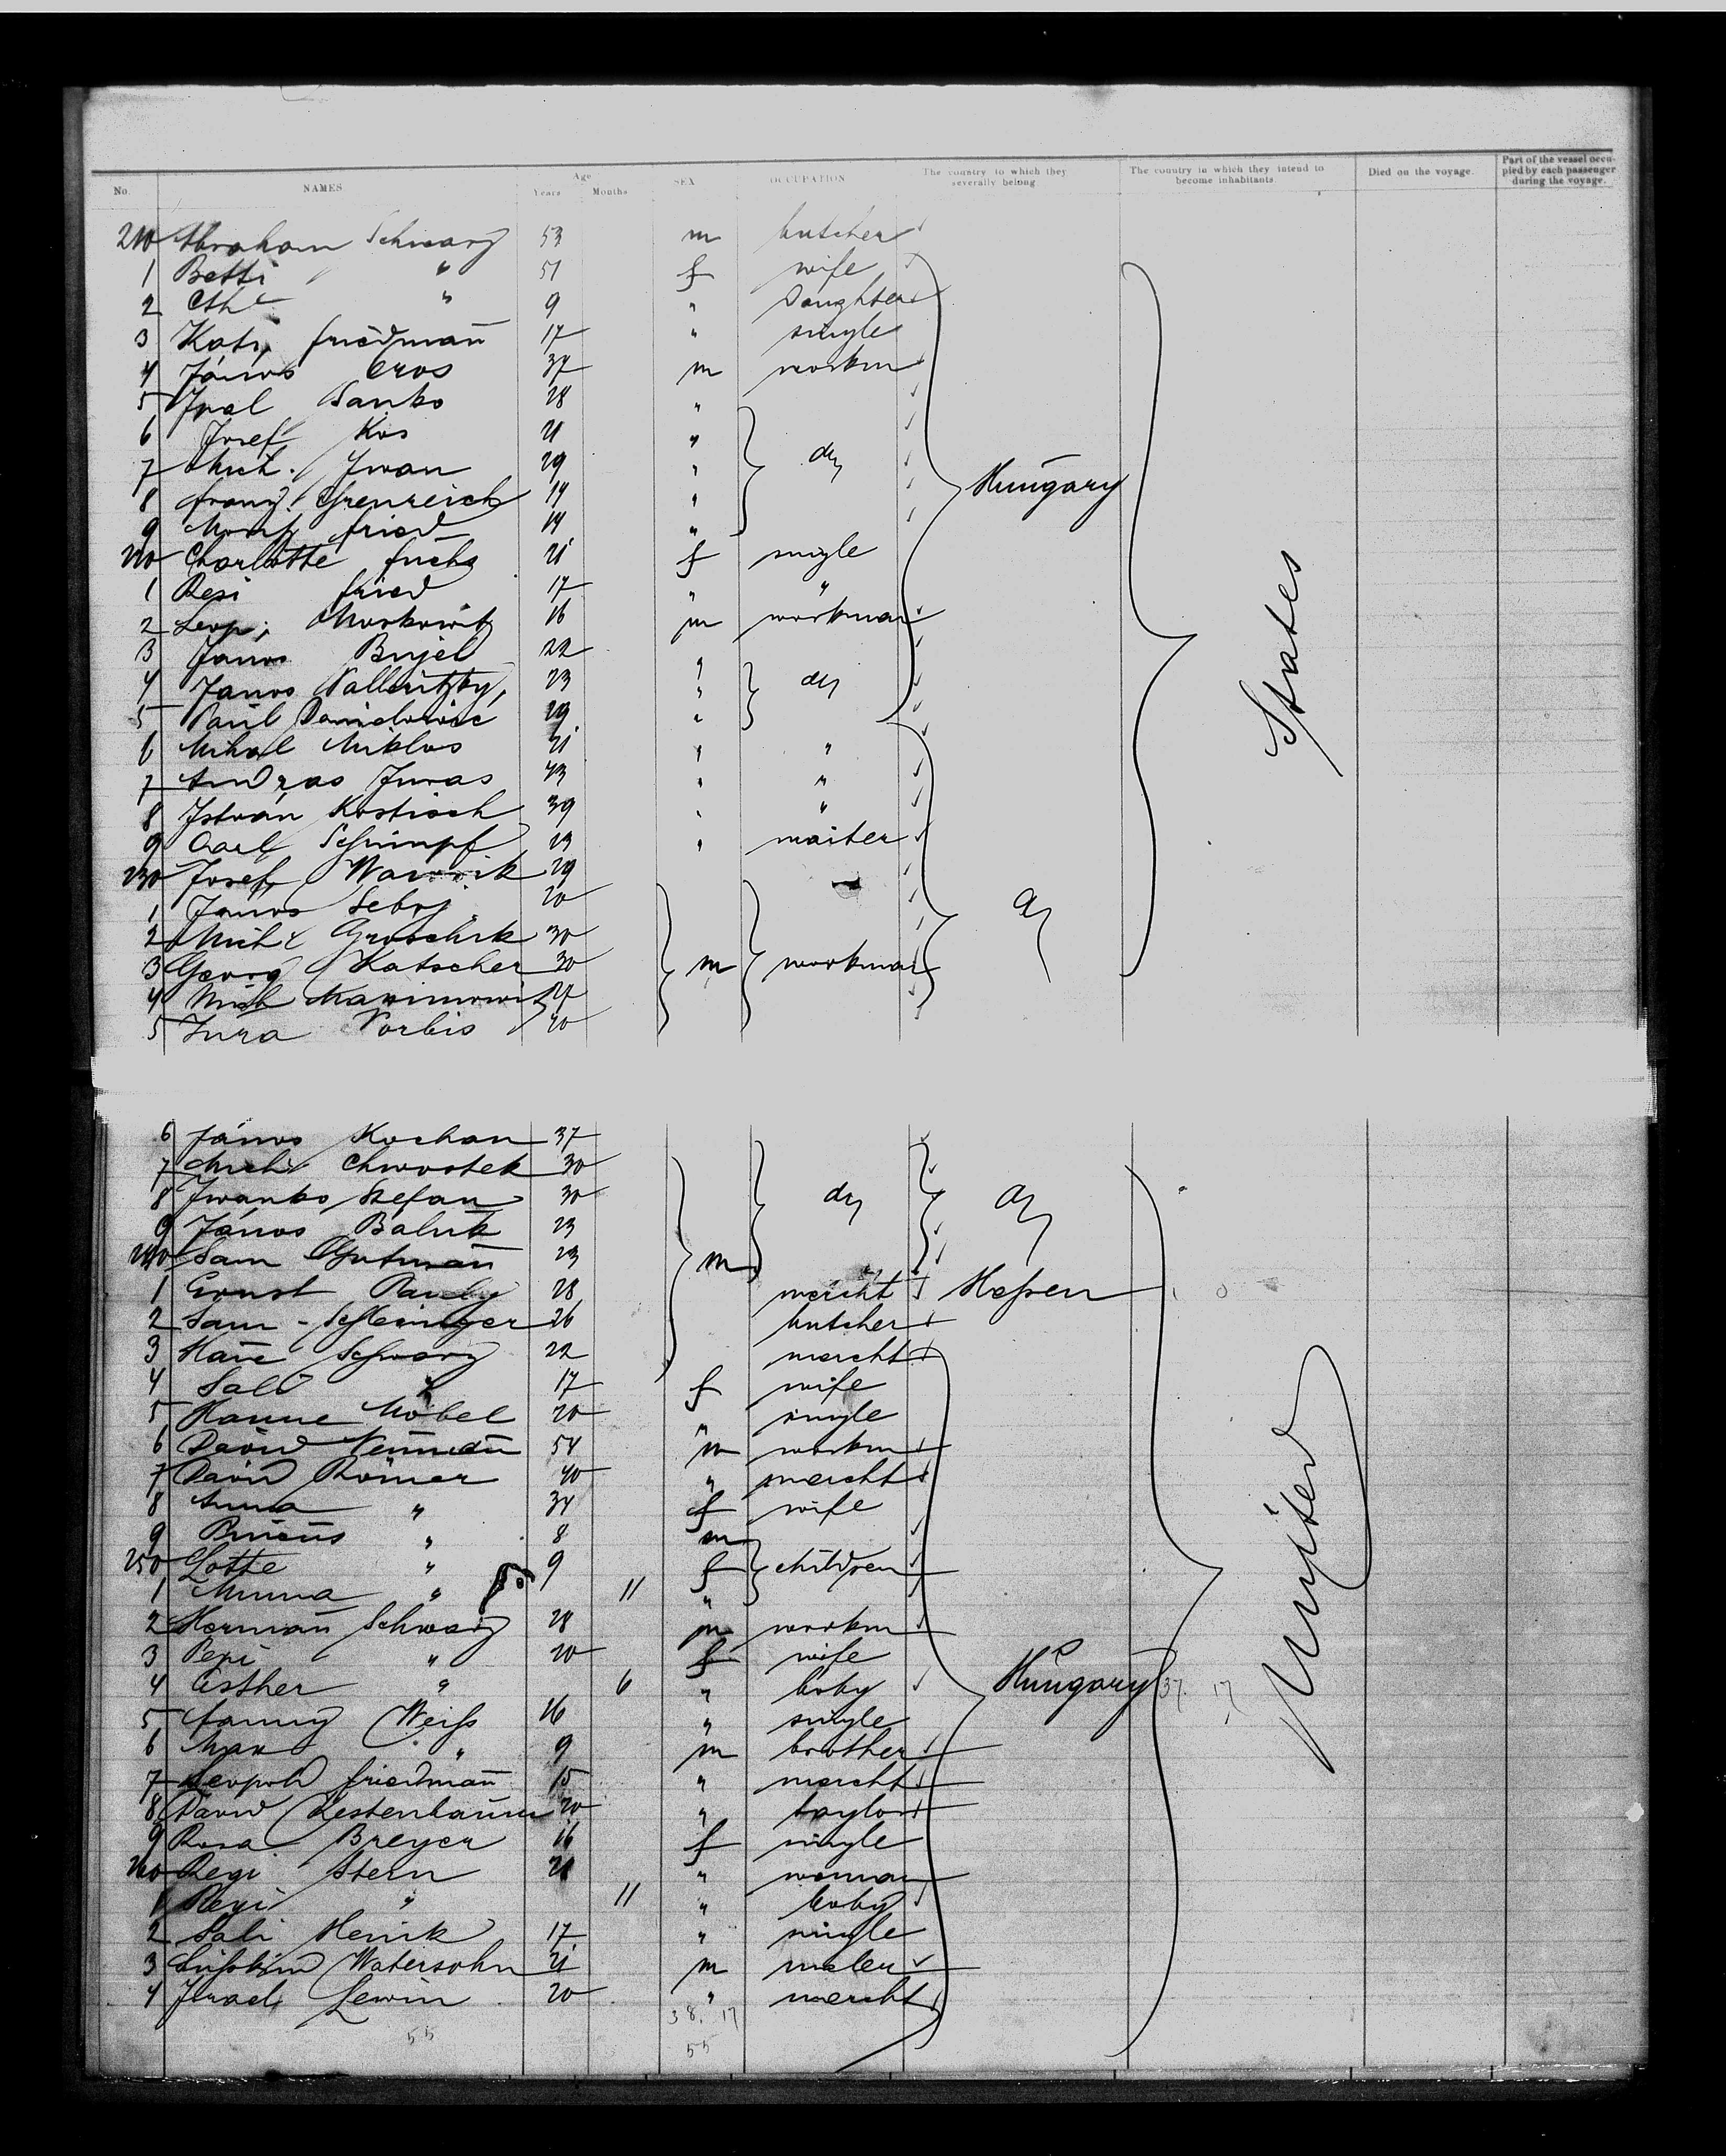 No. NAMES Age Years Months SEX OCCUPATION The country to which they severally belong The country in which they intend to become inhabitants. Died on the voyage. Part of the vessel occupied by each passenger during the voyage.
210 Abraham Schwarz 53 m butcher
1 Betti " 51 f wife
2 " 9 " Daughter
3 Kati, Friedmañ 17 " single
4 János Eros 37 m workm
5 Sanko 28 "
6 Josef Kos 21 "
7 Mich. Iwan 29 " do
8 Franz 19 " Hungary
9 Moritz Fried 19 "
220 Charlotte Fuchs 21 f single
1 Resi Fried 17 " "
2 Leop. Moskowitz 16 m workman
3 Janos Bujel 22 "
4 Janos 23 " do
5 Paul 29 "
6 Mihal Miklos 21 " "
7 András Juras 43 " "
8 István Kostisch 39 " "
9 Carl Schimpf 23 "
230 Josef 29
1 János 20
2 Mich Groschik 30
3 Georg Katscher 30 m workman
4 Mich Maximowitz 27
5 Jura 40
6 János Kochan 37
7 Mich Chwostek 30
8 Iwanko Stefan 30 do
9 János Baluk 23
240 Sam Gutmañ 23 m
1 Ernst 28 mercht Hessen
2 Sam Schlesinger 26 butcher
3 Schwarz 22 mercht
4 Sali " 17 f wife
5 Hanne Möbel 20 " single
6 David 54 m workm
7 David Römer 40 " mercht
8 Anna " 34 f wife
9 " 8 m
250 Lotte " 9 f children
1 Minna " 11 "
2 Hermañ Schwarz 28 m workm
3 Pepi " 20 f wife
4 Esther " 6 " baby
Hungary
5 Fanny Weiss 16 " single
6 Max " 9 m brother
7 Leopold Friedmañ 15 " mercht
8 David Kestenbaum 20 " taylor
9 Rosa Breyer 16 f single
260 Regi Stern 21 " woman
1 Regi " 11 " baby
2 Sali Henik 17 " single
3 Watersohn 21 m maler
4 Israel Lewin 20 " mercht
38. 17
55 55
37. 17
United States